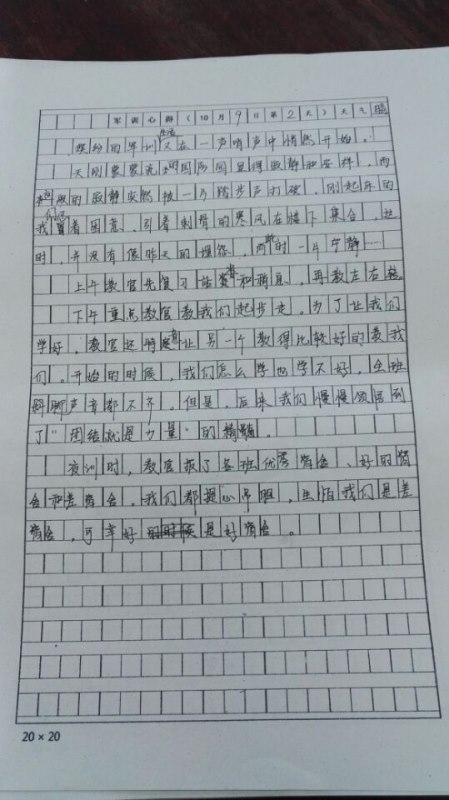 军训心得（10月9日第2天）天气晴
缤纷的军训生活又在一声哨声中悄然开始。
天刚蒙蒙亮，校园而显得寂静和安祥，而
校园的寂静突然被一片踏步声打破，刚起床的
我们冒着困意，迎着刺骨的寒风在楼下集合，这
时，并没有像昨天的埋怨，而时一片宁静……
上午教官先复习站军姿和稍息，再教左右转
下午重点教官教我们起步走，为了让我们
学好，教官还特意让另一个教得比较好的教我
们。开始的时候，我们怎么学也学不好，全班
脚声音都不齐。但是，后来我们慢慢领悟到
了“团结就是力量”的精髓。
夜训时，教官報了各班优秀宿舍、好的宿
舍和差宿舍，我们都提心吊胆，生怕我们是差
宿舍，可幸好是好宿舍。
20×20